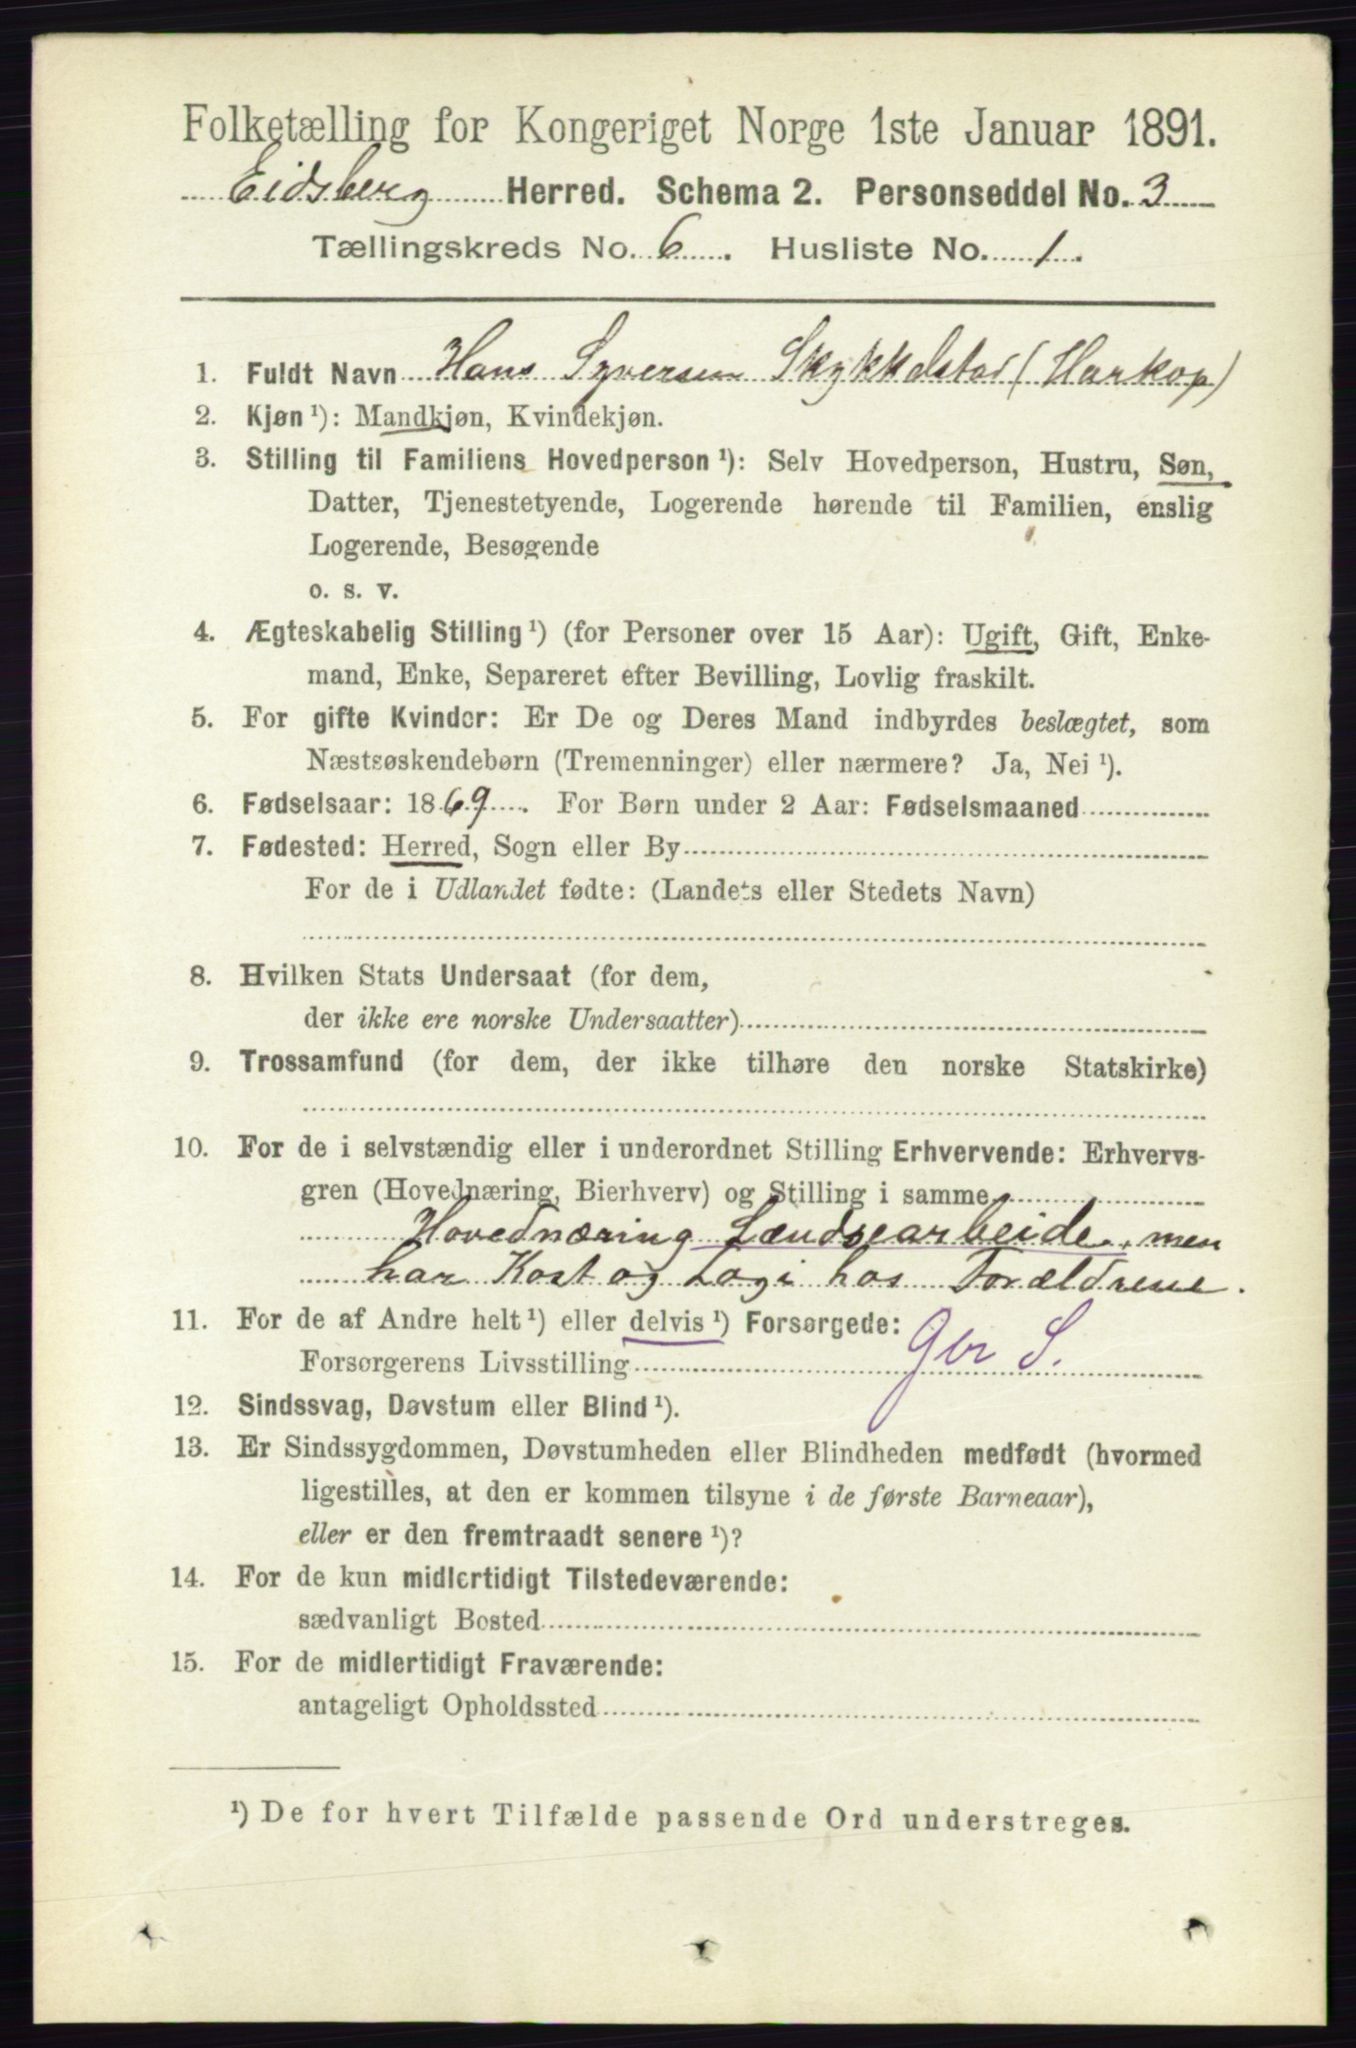 Folketælling for Kongeriget Norge 1ste Januar 1891.
Eidsberg Herred. Schema 2. Personseddel No. 3
Tællingskreds No. 6. Husliste No. 1.
1. Fuldt Navn Hans Syversen Skykkelstad (Harkop)
2. Kjøn ¹): Mandkjøn, Kvindekjøn.
3. Stilling til Familiens Hovedperson ¹): Selv Hovedperson, Hustru, Søn,
Datter, Tjenestetyende, Logerende hørende til Familien, enslig
Logerende, Besøgende
o. s. v.
4. Ægteskabelig Stilling ¹) (for Personer over 15 Aar): Ugift, Gift, Enke-
mand, Enke, Separeret efter Bevilling, Lovlig fraskilt.
5. For gifte Kvinder: Er De og Deres Mand indbyrdes beslægtet, som
Næstsøskendebørn (Tremenninger) eller nærmere? Ja, Nei ¹).
6. Fødselsaar: 1869. For Børn under 2 Aar: Fødselsmaaned
7. Fødested: Herred, Sogn eller By
For de i Udlandet fødte: (Landets eller Stedets Navn)
8. Hvilken Stats Undersaat (for dem,
der ikke ere norske Undersaatter)
9. Trossamfund (for dem, der ikke tilhøre den norske Statskirke)
10. For de i selvstændig eller i underordnet Stilling Erhvervende: Erhvervs-
gren (Hovednæring, Bierhverv) og Stilling i samme
Hovednæring Lændsearbeide, men
har Kost og Logi hos Forældrene.
11. For de af Andre helt ¹) eller delvis ¹) Forsørgede:
Forsørgerens Livsstilling Gbr S.
12. Sindssvag, Døvstum eller Blind ¹).
13. Er Sindssygdommen, Døvstumheden eller Blindheden medfødt (hvormed
ligestilles, at den er kommen tilsyne i de første Barneaar),
eller er den fremtraadt senere ¹)?
14. For de kun midlertidigt Tilstedeværende:
sædvanligt Bosted
15. For de midlertidigt Fraværende:
antageligt Opholdssted
¹) De for hvert Tilfælde passende Ord understreges.